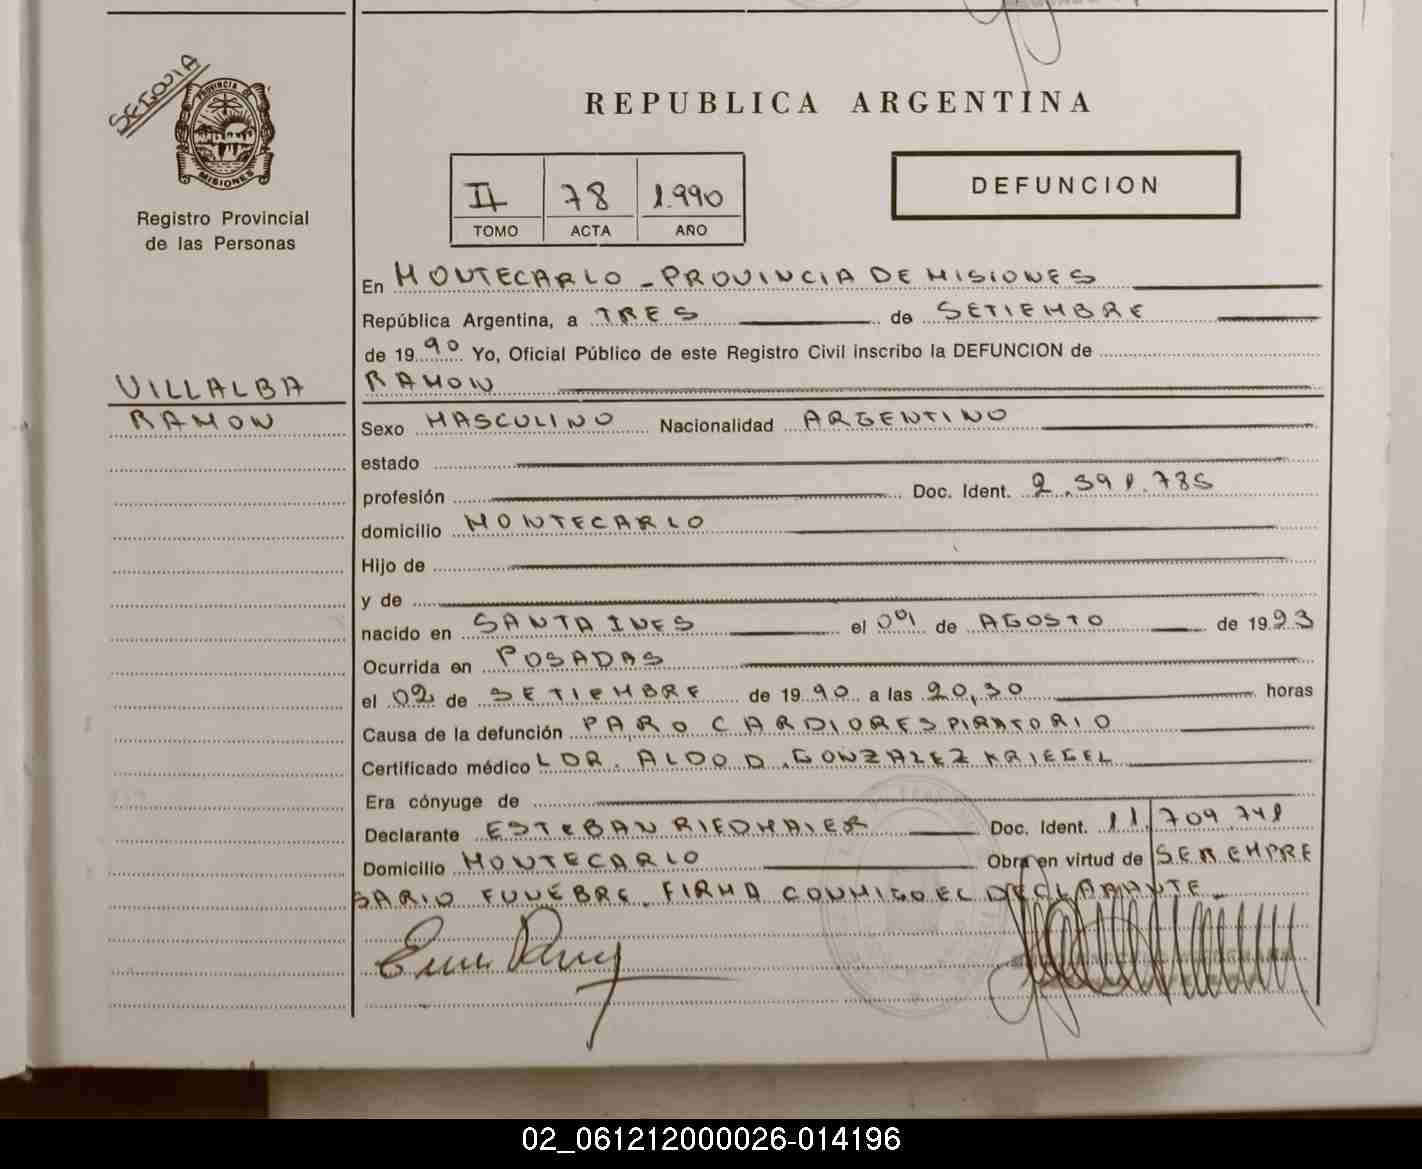 SEGOVIA
PROVINCIA DE
MISIONES
Registro Provincial
de las Personas
REPUBLICA ARGENTINA
II 78 1.990
TOMO ACTA AÑO
DEFUNCION
En MONTECARLO - PROVINCIA DE MISIONES
República Argentina, a TRES de SETIEMBRE
de 1990 Yo, Oficial Público de este Registro Civil inscribo la DEFUNCION de
VILLALBA
RAMON
RAMON
Sexo MASCULINO Nacionalidad ARGENTINO
estado
profesión Doc. Ident. 2.391.785
domicilio MONTECARLO
Hijo de
y de
nacido en SANTA INES el 09 de AGOSTO de 1923
Ocurrida en POSADAS
el 02 de SETIEMBRE de 1990 a las 20,30 horas
Causa de la defunción PARO CARDIORESPIRATORIO
Certificado médico DR. ALDO D. GONZALEZ KRIEGEL
Era cónyuge de
Declarante ESTEBAN RIEDMAIER Doc. Ident. 11.709.741
Domicilio MONTECARLO Obra en virtud de SER EMPRE
SARIO FUNEBRE. FIRMA CONMIGO EL DECLARANTE.
02_061212000026-014196